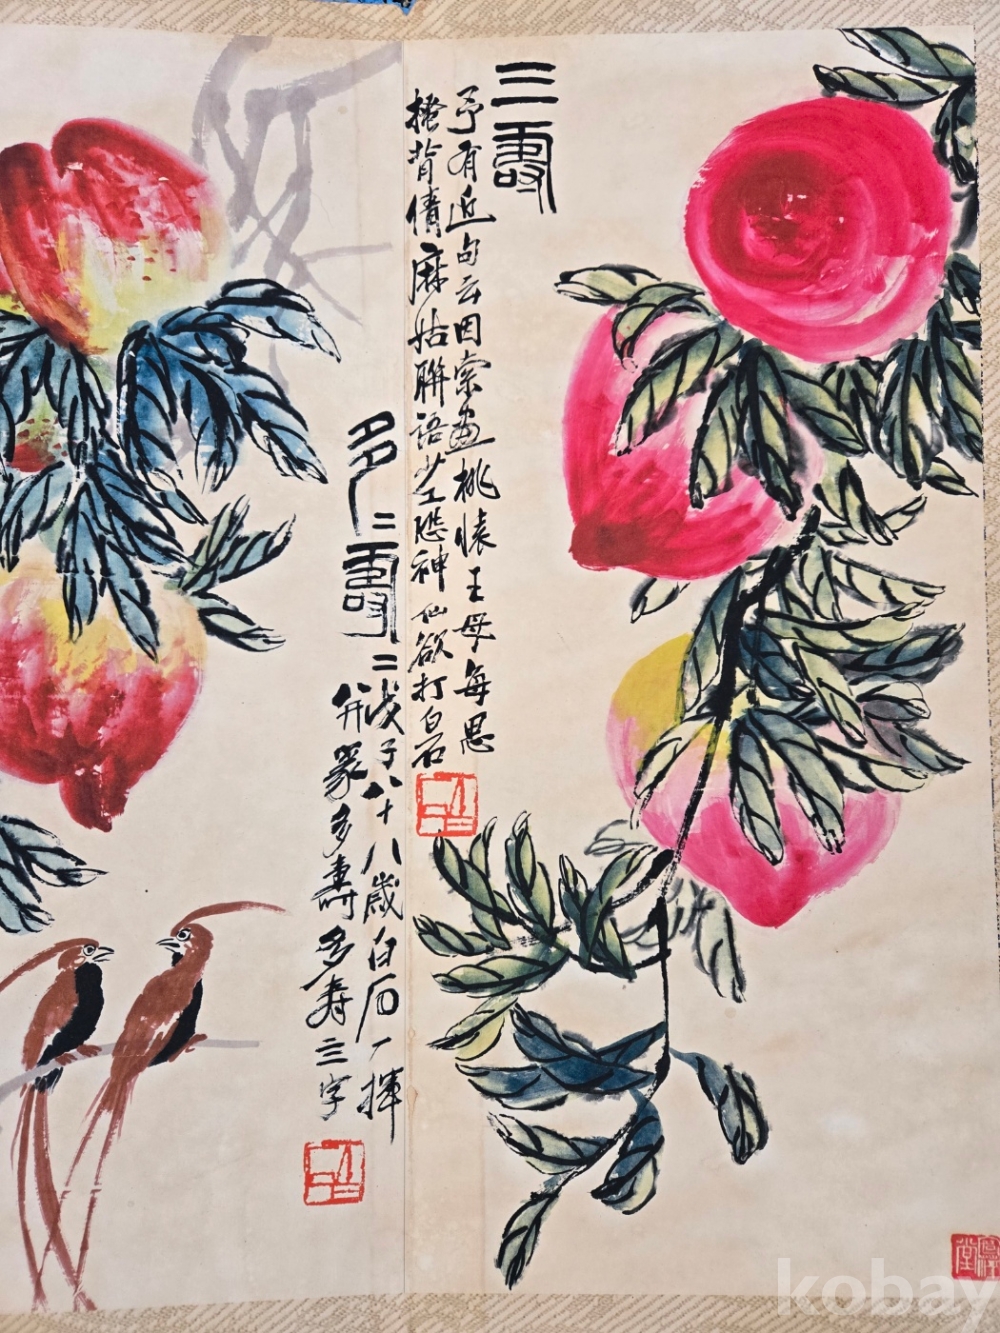 三壽
予有近句云因索畫桃懐王母每思
搔背倩麻姑聯語
神仙欲打白石
多壽
戊子八十八歲白石一揮
并篆多壽多寿三字
白石
白石
堂
kobay